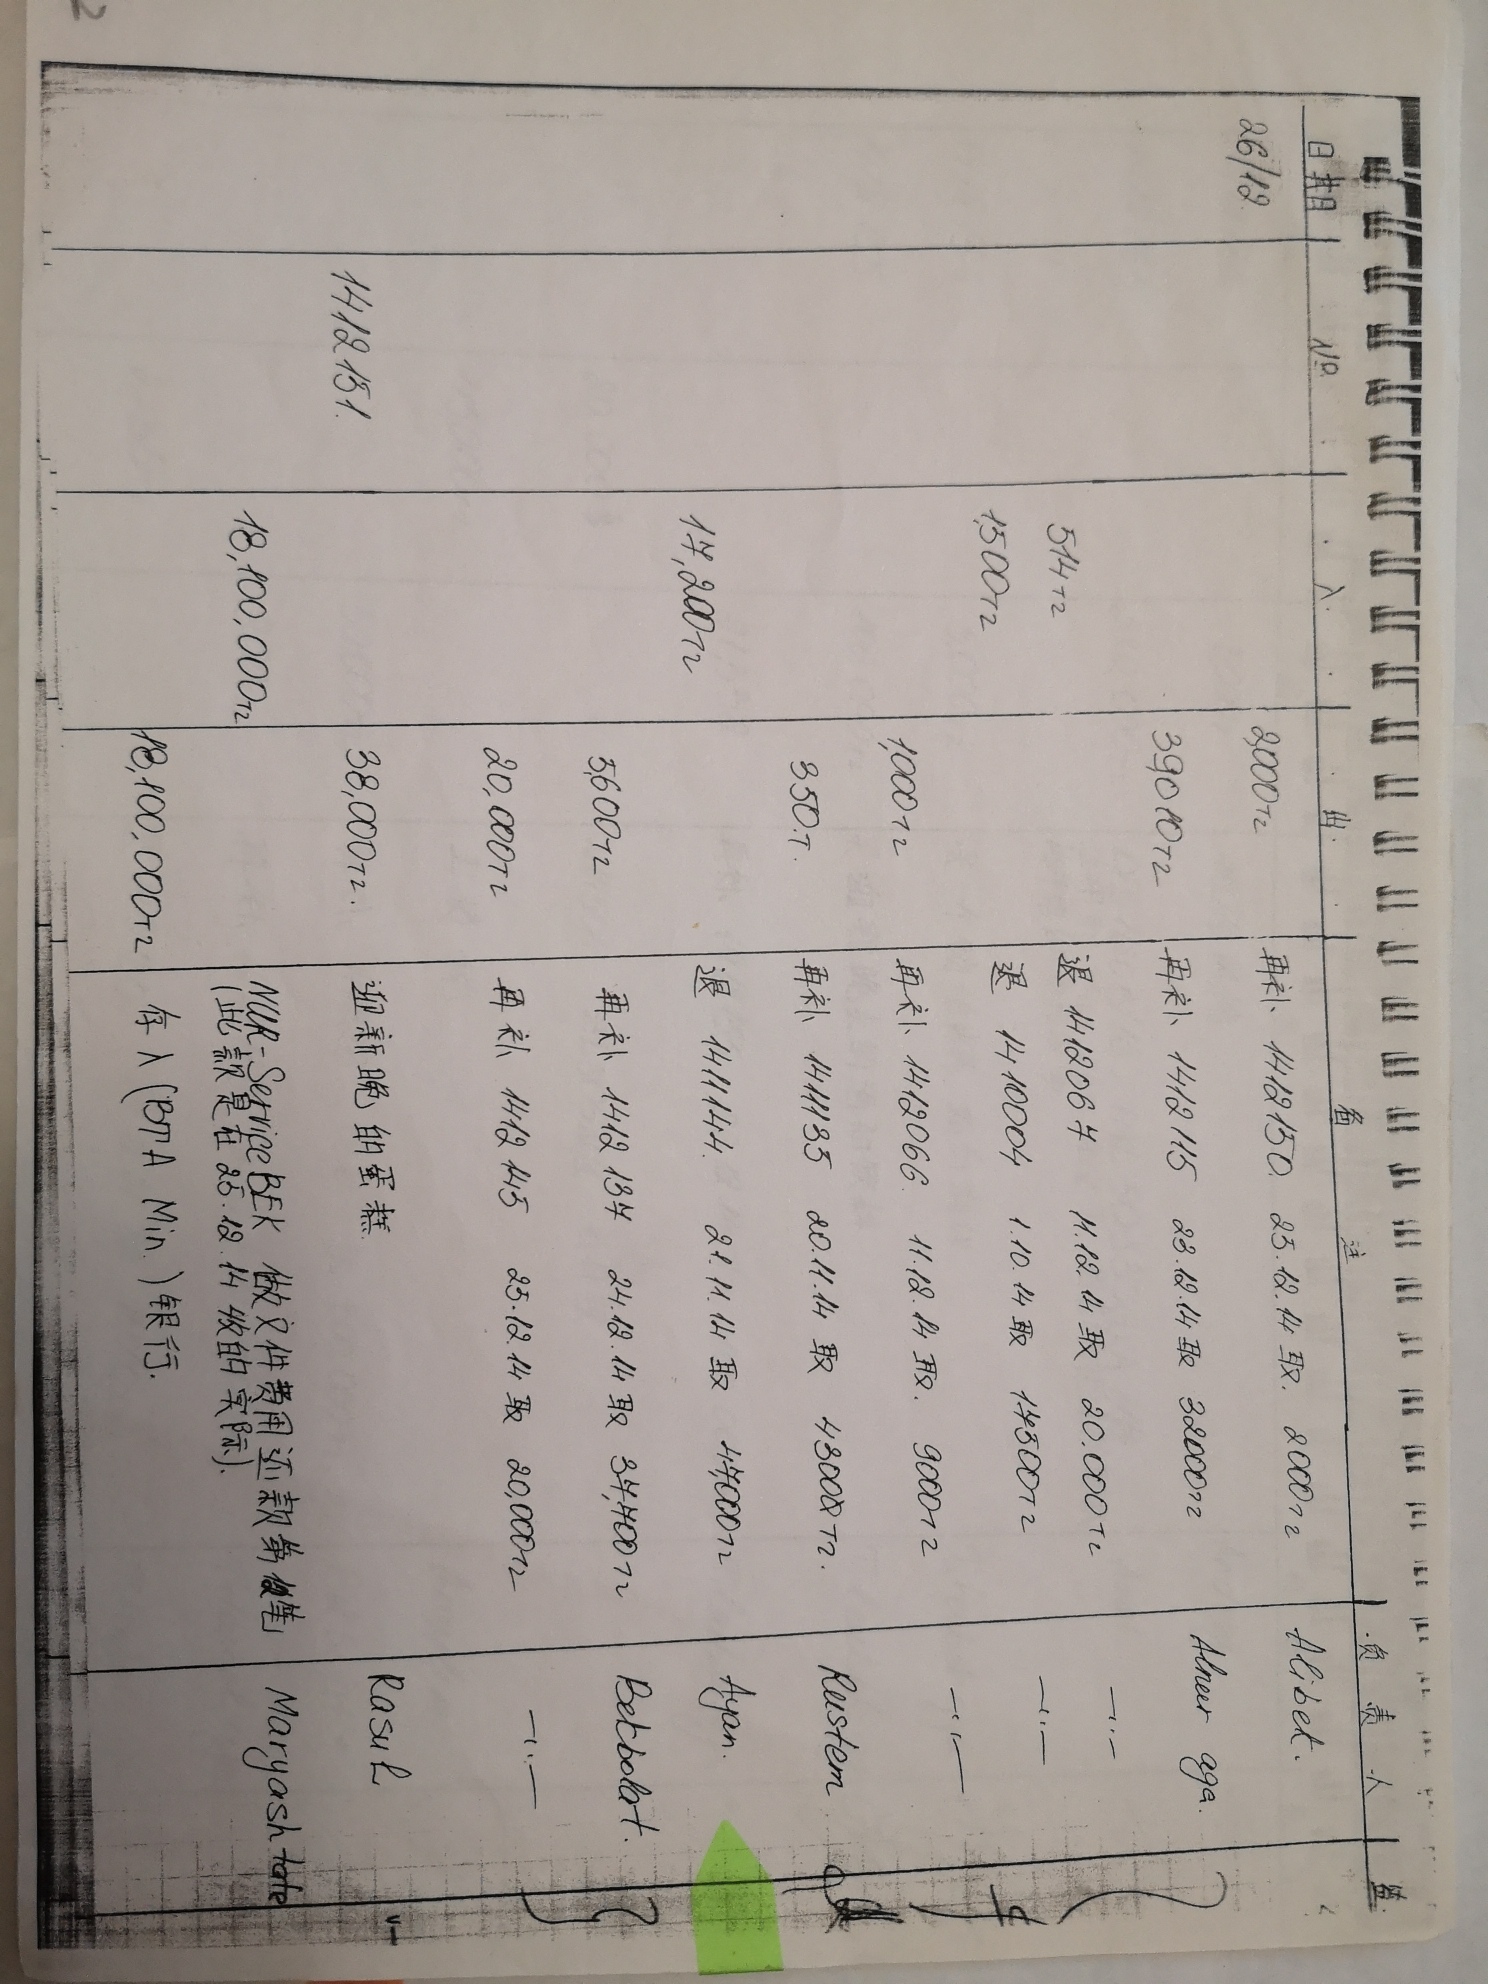 日期 № 入 出 备注 负责人 签
26/12 2,000тг 再补 1412150. 25.12.14 取. 2000тг Alibek.
39010тг 再补 1412115 23.12.14 取 32000тг Alnur aga.
514тг 退 1412067 11.12.14 取 20.000тг —''—
1,500тг 退 1410004 1.10.14 取 17500тг —''—
1,000тг 再补 1412066. 11.12.14 取. 9000тг —''—
350.т. 再补 1411135 20.11.14 取 43000тг. Rustem
17,200тг 退 1411144. 21.11.14 取 47000тг Ayan.
5,600тг 再补 1412137 24.12.14 取 37,400тг Bekbolat.
20,000тг 再补 1412145 25.12.14 取 20,000тг —''—
1412151. 38,000тг. 迎新晚的蛋糕 Rasul
18,100,000тг NUR-ServiceBEK 做文件费用还款第 笔 Maryash tate
(此款是在25.12.14收的实际).
18,100,000тг 存入(BTA Min.)银行.
2